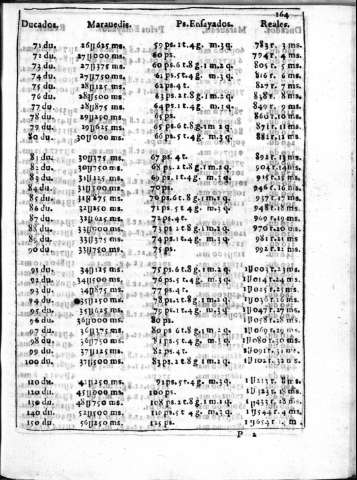 164
Ducados. Marauedis. Ps.Ensayados. Reales.
71 du. 26||625 ms. 59 ps.1t.4g. m.3q. 783 r. 3 ms.
72 du. 27||000 ms. 60 ps. 794 r. 4 ms.
73 du. 27||375 ms. 60 ps.6t.8g.1m.2q. 805 r. 5 ms.
74 du. 27||750 ms. 61 ps.5t.4g. m.3q. 816 r. 6 ms.
75 du. 28||125 ms. 62 ps.4t. 827 r. 7 ms.
76 du. 28||500 ms. 63 ps.2t.8g.1m.2q. 838 r. 8 ms.
77 du. 28||875 ms. 64 ps.1t.4g. m.3q. 849 r. 9 ms.
78 du. 29||250 ms. 65 ps. 860 r.10 ms.
79 du. 29||625 ms. 65 ps.6t.8g.1m.2q. 871 r.11 ms.
80 du. 30||000 ms. 66 ps.5t.4g. m.3q. 882 r.12 ms.
81 du. 30||375 ms. 67 ps.4t. 892 r.13 ms.
82 du. 30||750 ms. 68 ps.2t.8g.1m.2q. 904 r.14 ms.
83 du. 31||125 ms. 69 ps.1t.4g. m.3q. 915 r.15 ms.
84 du. 31||500 ms. 70 ps. 946 r.16 ms.
85 du. 31||875 ms. 70 ps.6t.8g.1m.2q. 937 r.17 ms.
86 du. 32||250 ms. 71 ps.5t.4g. m.3q. 948 r.18 ms.
87 du. 32||625 ms. 72 ps.4t. 969 r.19 ms.
88 du. 33||000 ms. 73 ps.2t.8g.1m.2q. 970 r.20 ms.
89 du. 33||375 ms. 74 ps.1t.4g. m.3q. 981 r.21 ms.
90 du. 33||750 ms. 75 ps. 992 r.22 ms.
91 du. 34||125 ms. 75 ps.6t.8g.1m.2q. 1||003 r.23 ms.
92 du. 34||500 ms. 76 ps.5t.4g. m.3q. 1||014 r.24 ms.
93 du. 34||875 ms. 77 ps.4t. 1||025 r.25 ms.
94 du. 35||250 ms. 78 ps.2t.8g.1m.2q. 1||036 r.26 ms.
95 du. 35||625 ms. 79 ps.1t.4g. m.3q. 1||047 r.27 ms.
96 du. 36||000 ms. 80 ps. 1||058 r.28 ms.
97 du. 36||375 ms. 80 ps.6t.8g.1m.2q. 1||069 r.29 ms.
98 du. 36||750 ms. 81 ps.5t.4g. m.3q. 1||080 r.30 ms.
99 du. 37||125 ms. 82 ps.4t. 1||091 r.31 ms.
100 du. 37||500 ms. 83 ps.2t.8g.1m.2q. 1||102 r.32 ms.
110 du. 41||250 ms. 91 ps.5t.4g. m.3q. 1||213 r. 8 ms.
120 du. 45||000 ms. 100 ps. 1||323 r.18 ms.
130 du. 48||750 ms. 108 ps.2t.8g.1m.2q. 1||433 r.28 ms.
140 du. 52||500 ms. 116 ps.5t.4g. m.3q. 1||544 r.4 ms.
150 du. 56||250 ms. 125 ps. 1||654 r.14 m.
P 2